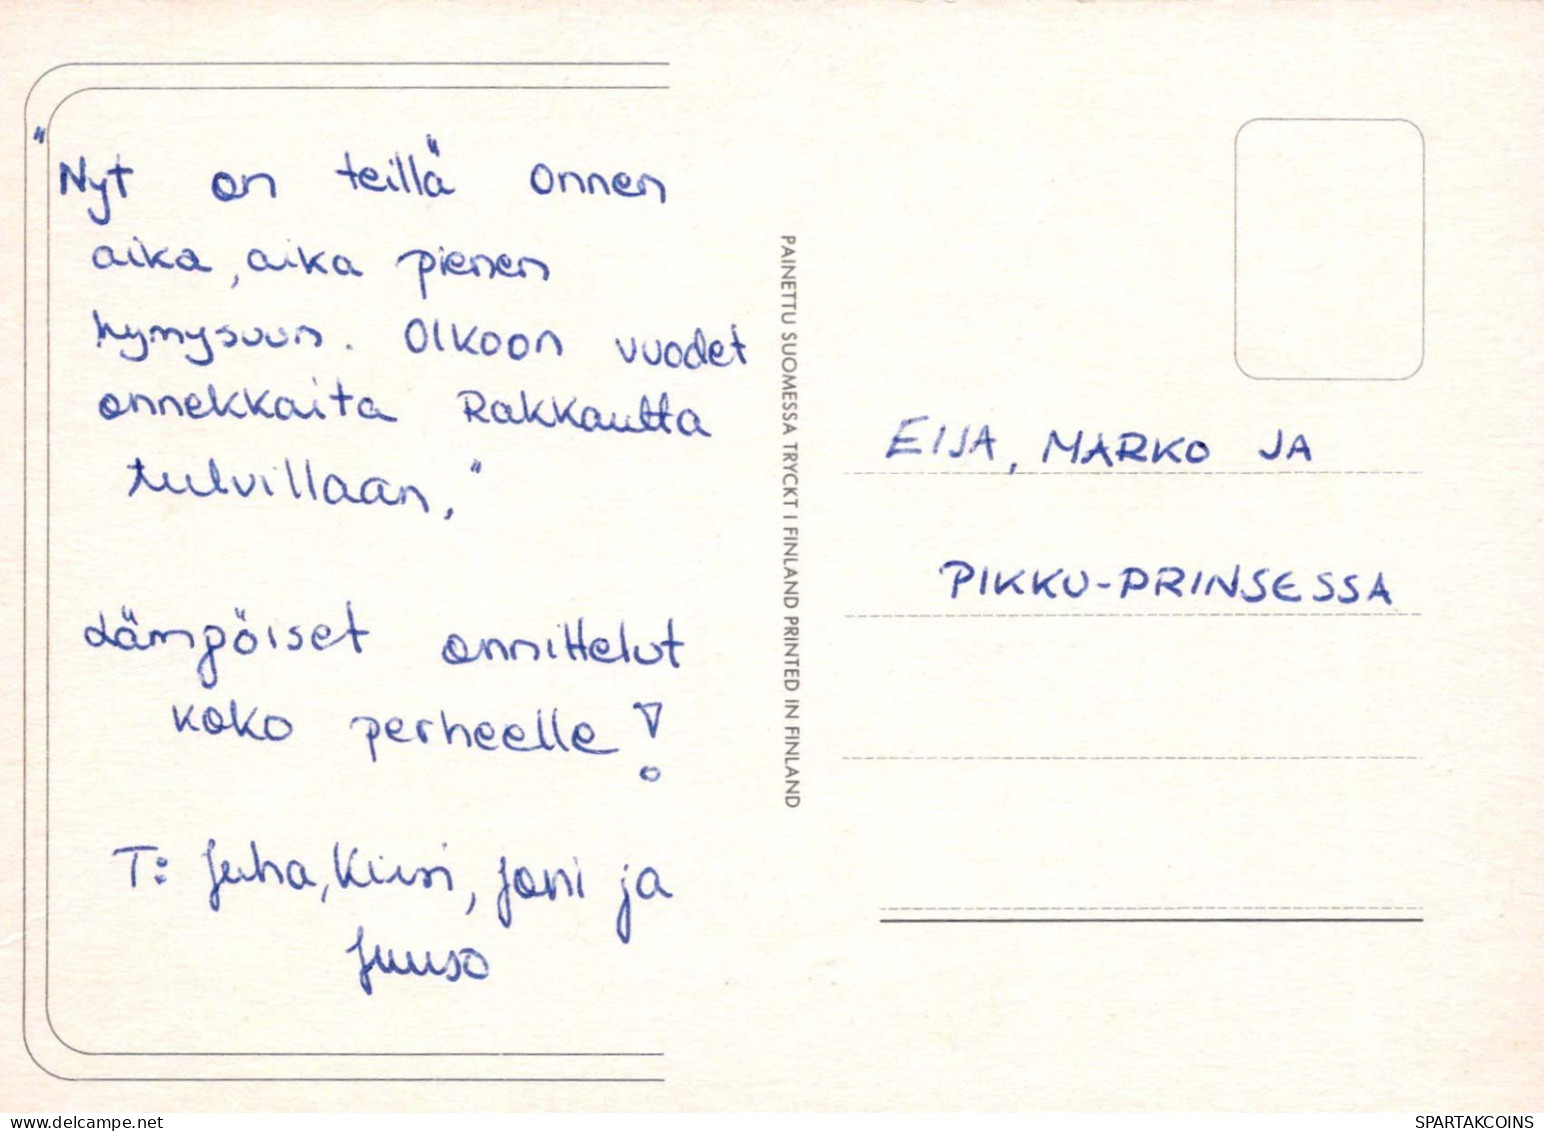 "Nyt on teillä onnen
aika, aika pienen
hymysuun. Olkoon vuodet
onnekkaita Rakkautta
tulvillaan."
Lämpöiset onnittelut
koko perheelle!
T: Juha, Kirsi, Joni ja
Juuso
PAINETTU SUOMESSA TRYCKT I FINLAND PRINTED IN FINLAND
EIJA, MARKO JA
PIKKU-PRINSESSA
delcampe.net
SPARTAKCOINS